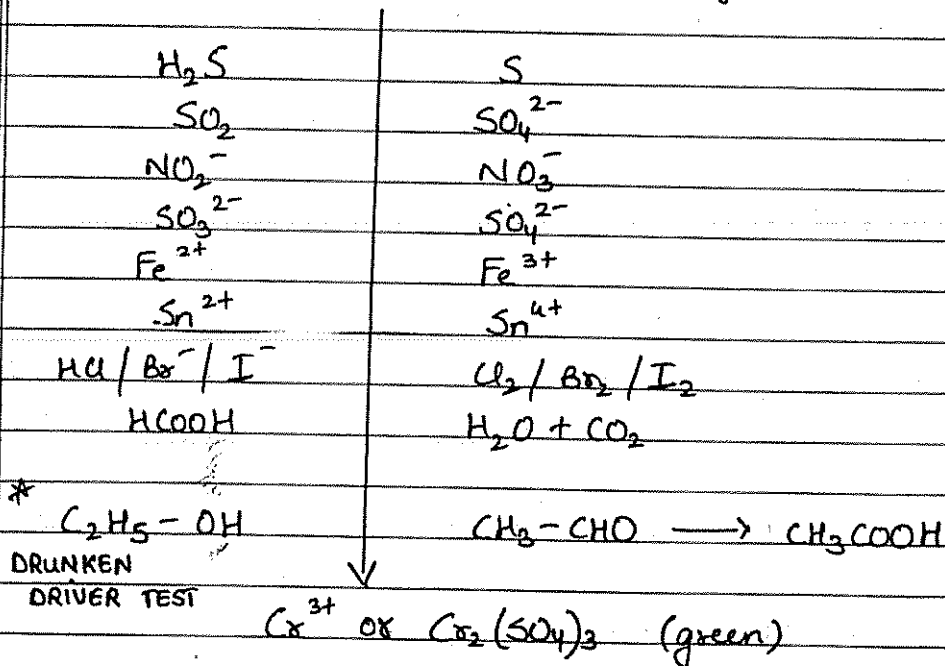 H₂S S
SO₂ SO₄²⁻
NO₂⁻ NO₃⁻
SO₃²⁻ SO₄²⁻
Fe²⁺ Fe³⁺
Sn²⁺ Sn⁴⁺
HCl / Br⁻ / I⁻ Cl₂ / Br₂ / I₂
HCOOH H₂O + CO₂
* C₂H₅ – OH CH₃ – CHO ⟶ CH₃COOH
DRUNKEN
DRIVER TEST
Cr³⁺ or Cr₂(SO₄)₃ (green)